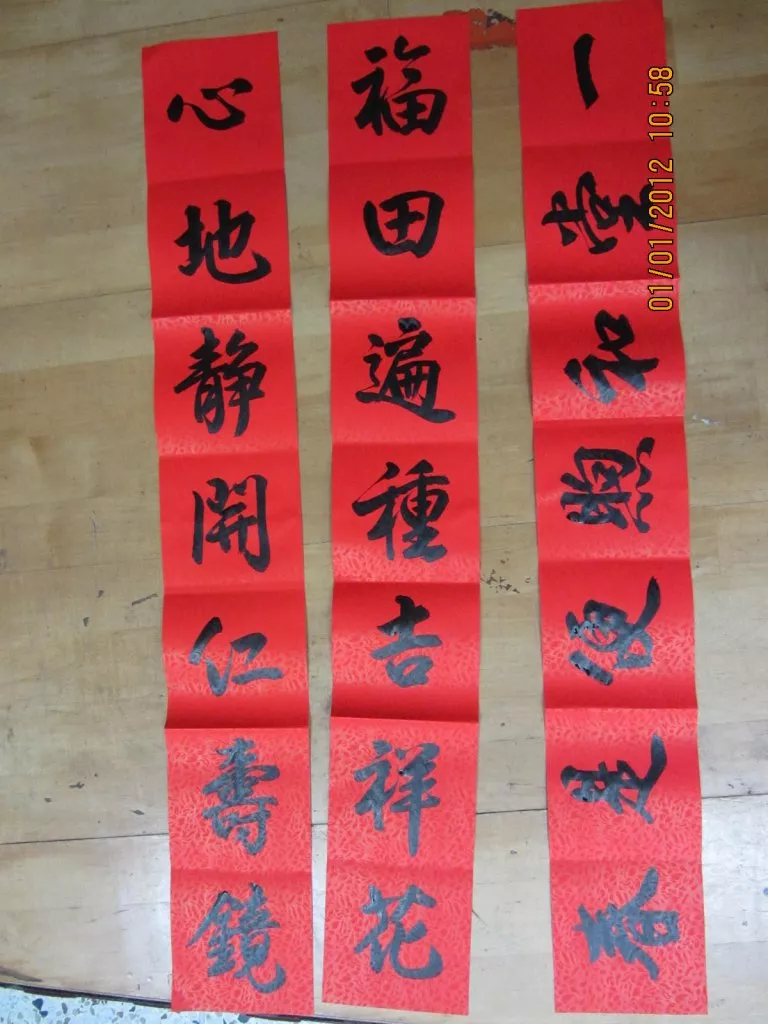 心地靜開仁壽鏡
福田遍種吉祥花
一堂和煦便是春
01/01/2012 10:58